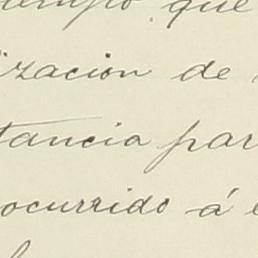 tiempo que
ización de
tancia par
ocurrido á